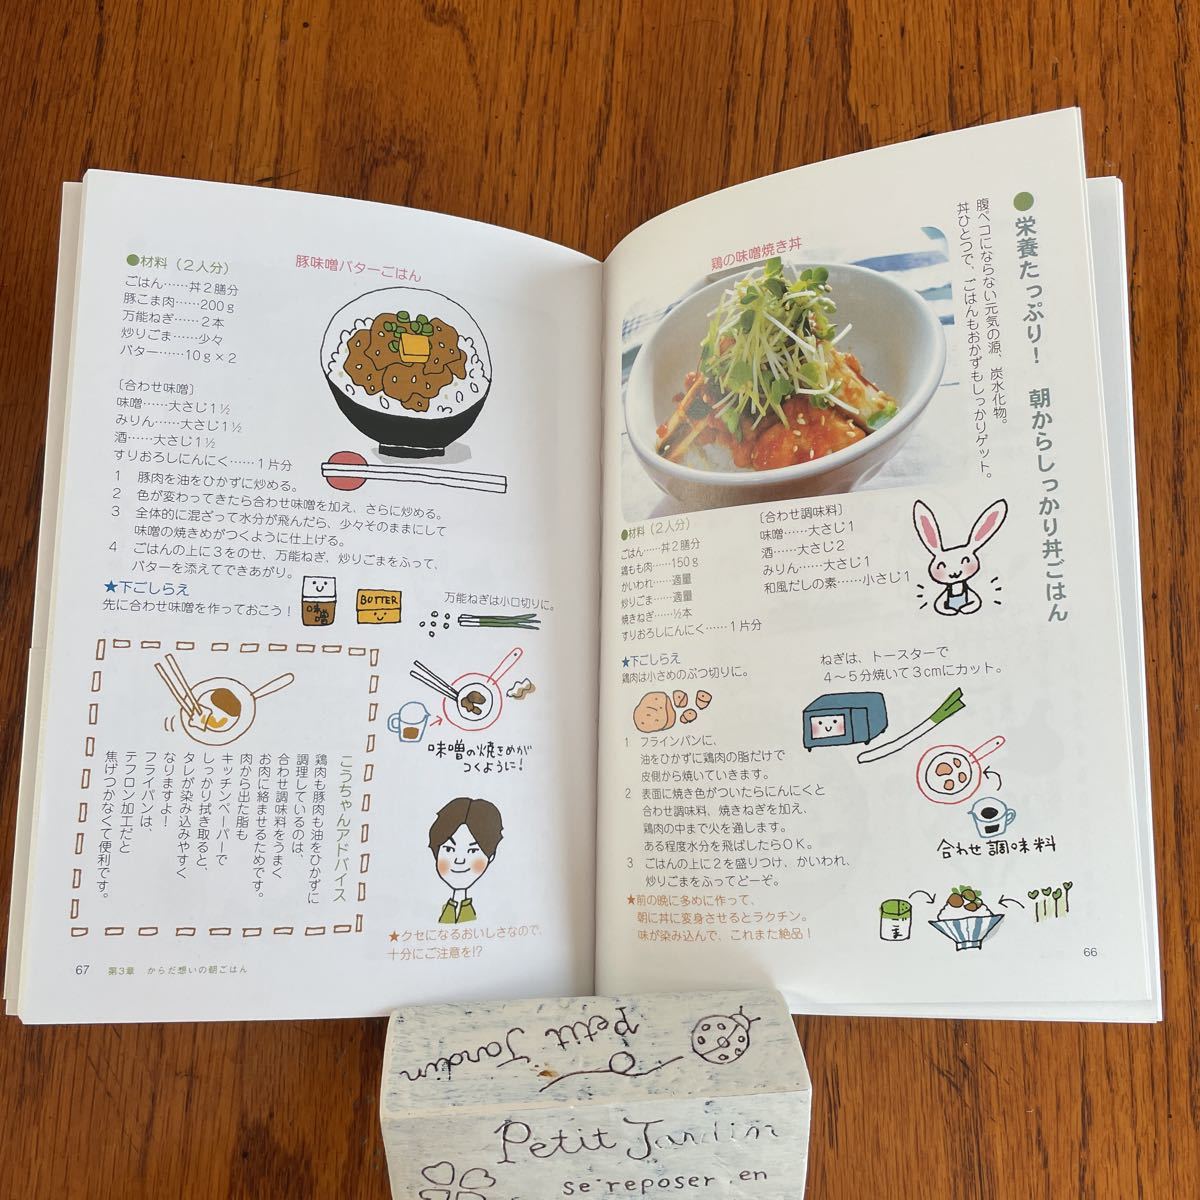 ●栄養たっぷり! 朝からしっかり丼ごはん
腹ペコにならない元気の源、炭水化物。
丼ひとつで、ごはんもおかずもしっかりゲット。
鶏の味噌焼き丼
●材料(2人分)
ごはん……丼2膳分
鶏もも肉……150g
かいわれ……適量
炒りごま……適量
焼きねぎ……½本
すりおろしにんにく……1片分
〔合わせ調味料〕
味噌……大さじ1
酒……大さじ2
みりん……大さじ1
和風だしの素……小さじ1
★下ごしらえ
鶏肉は小さめのぶつ切りに。
ねぎは、トースターで
4〜5分焼いて3cmにカット。
1 フラインパンに、
油をひかずに鶏肉の脂だけで
皮側から焼いていきます。
2 表面に焼き色がついたらにんにくと
合わせ調味料、焼きねぎを加え、
鶏肉の中まで火を通します。
ある程度水分を飛ばしたらOK。
3 ごはんの上に2を盛りつけ、かいわれ、
炒りごまをふってどーぞ。
合わせ調味料
★前の晩に多めに作って、
朝に丼に変身させるとラクチン。
味が染み込んで、これまた絶品!
66
豚味噌バターごはん
●材料(2人分)
ごはん……丼2膳分
豚こま肉……200g
万能ねぎ……2本
炒りごま……少々
バター……10g×2
〔合わせ味噌〕
味噌……大さじ1½
みりん……大さじ1½
酒……大さじ1½
すりおろしにんにく……1片分
1 豚肉を油をひかずに炒める。
2 色が変わってきたら合わせ味噌を加え、さらに炒める。
3 全体的に混ざって水分が飛んだら、少々そのままにして
味噌の焼きめがつくように仕上げる。
4 ごはんの上に3をのせ、万能ねぎ、炒りごまをふって、
バターを添えてできあがり。
★下ごしらえ
先に合わせ味噌を作っておこう!
味噌
BUTTER
万能ねぎは小口切りに。
味噌の焼きめが
つくように!
こうちゃんアドバイス
鶏肉も豚肉も油をひかずに
調理しているのは、
合わせ調味料をうまく
お肉に絡ませるためです。
肉から出た脂も
キッチンペーパーで
しっかり拭き取ると、
タレが染み込みやすく
なりますよ!
フライパンは、
テフロン加工だと
焦げつかなくて便利です。
★クセになるおいしさなので、
十分にご注意を!?
67 第3章 からだ想いの朝ごはん
Petit Jardin
Petit Jardin
se reposer en